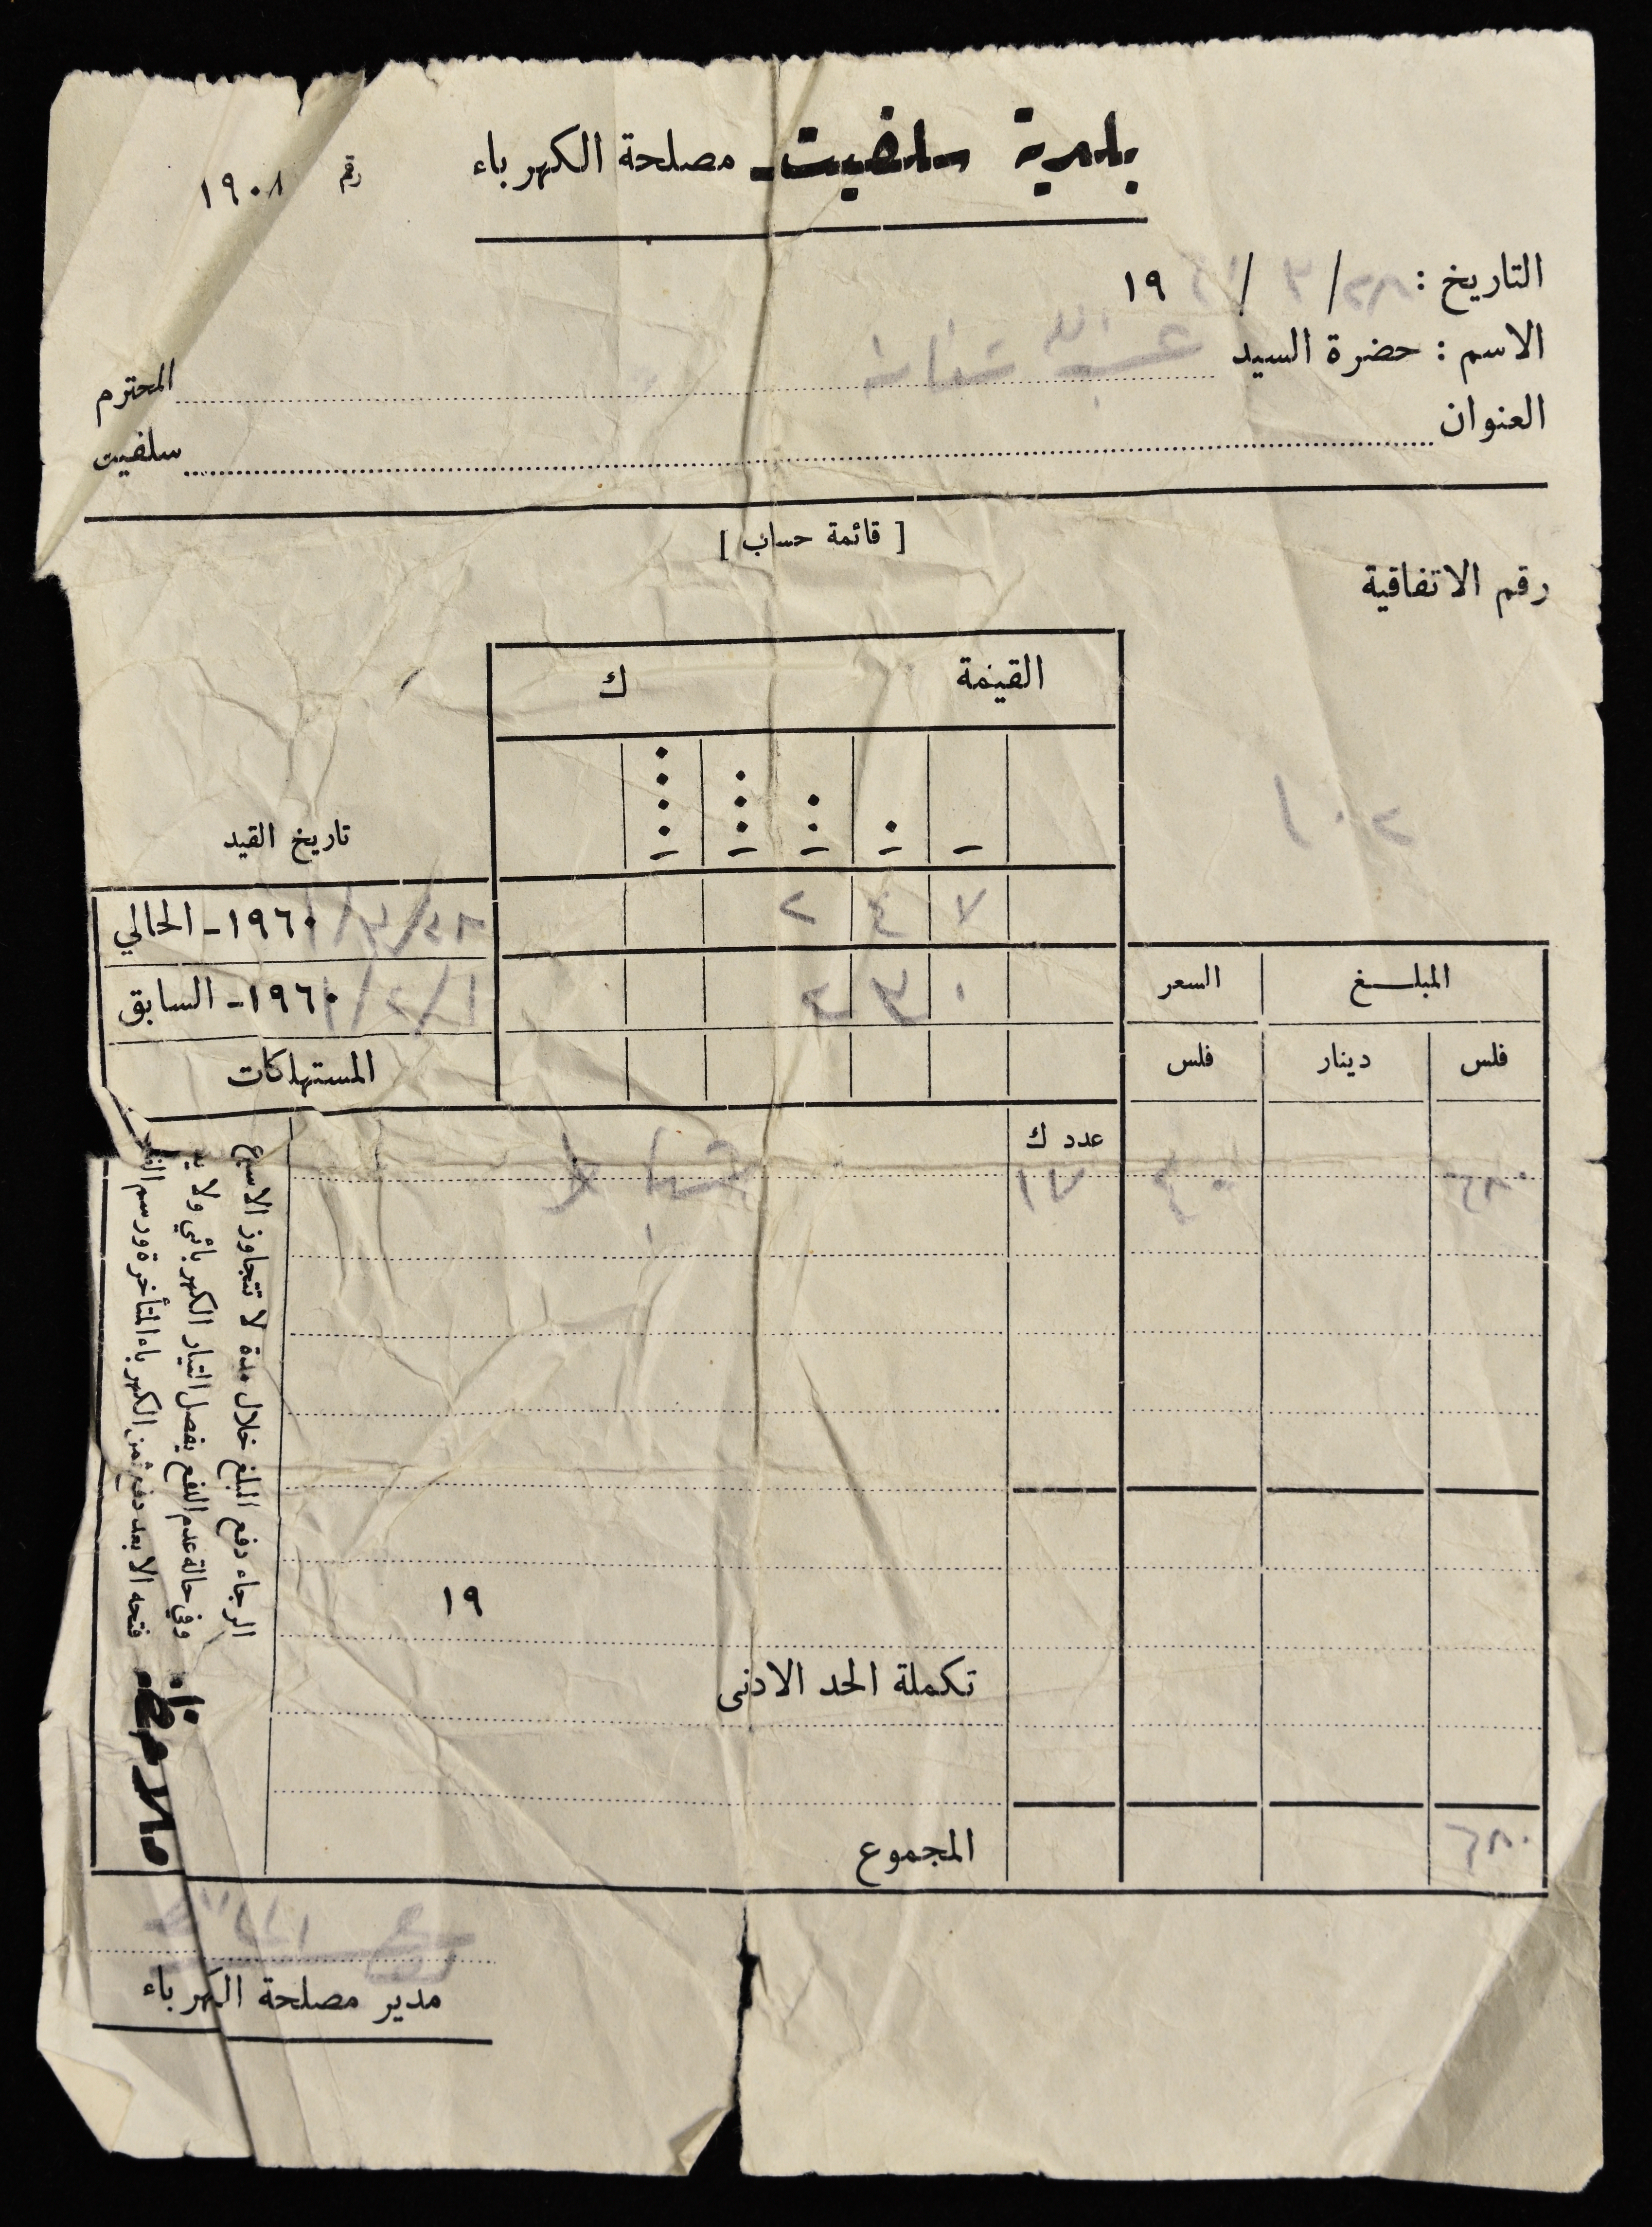 بلدية سلفيت - مصلحة الكهرباء
رقم ١٩٠٨
التاريخ : ٢٨ / ٣ / ١٩
الاسم : حضرة السيد عبد الله المحترم
العنوان سلفيت
[ قائمة حساب ]
رقم الاتفاقية
القيمة ك
٢٠١
تاريخ القيد
١٩٦٠ - الحالي
٢ ٤ ٧
١٩٦٠ - السابق
٢ ٣ ٠
المستهلكات
المبلغ السعر
فلس دينار فلس
عدد ك
١٧
٤٠
٦٨٠
١٩
تكملة الحد الادنى
المجموع
٦٨٠
ملاحظة :
الرجاء دفع المبلغ خلال مدة لا تتجاوز الاسبوع
وفي حالة عدم الدفع يفصل التيار الكهربائي ولا يعاد
فتحه الا بعد دفع ثمن الكهرباء المتأخرة ورسم
مدير مصلحة الكهرباء